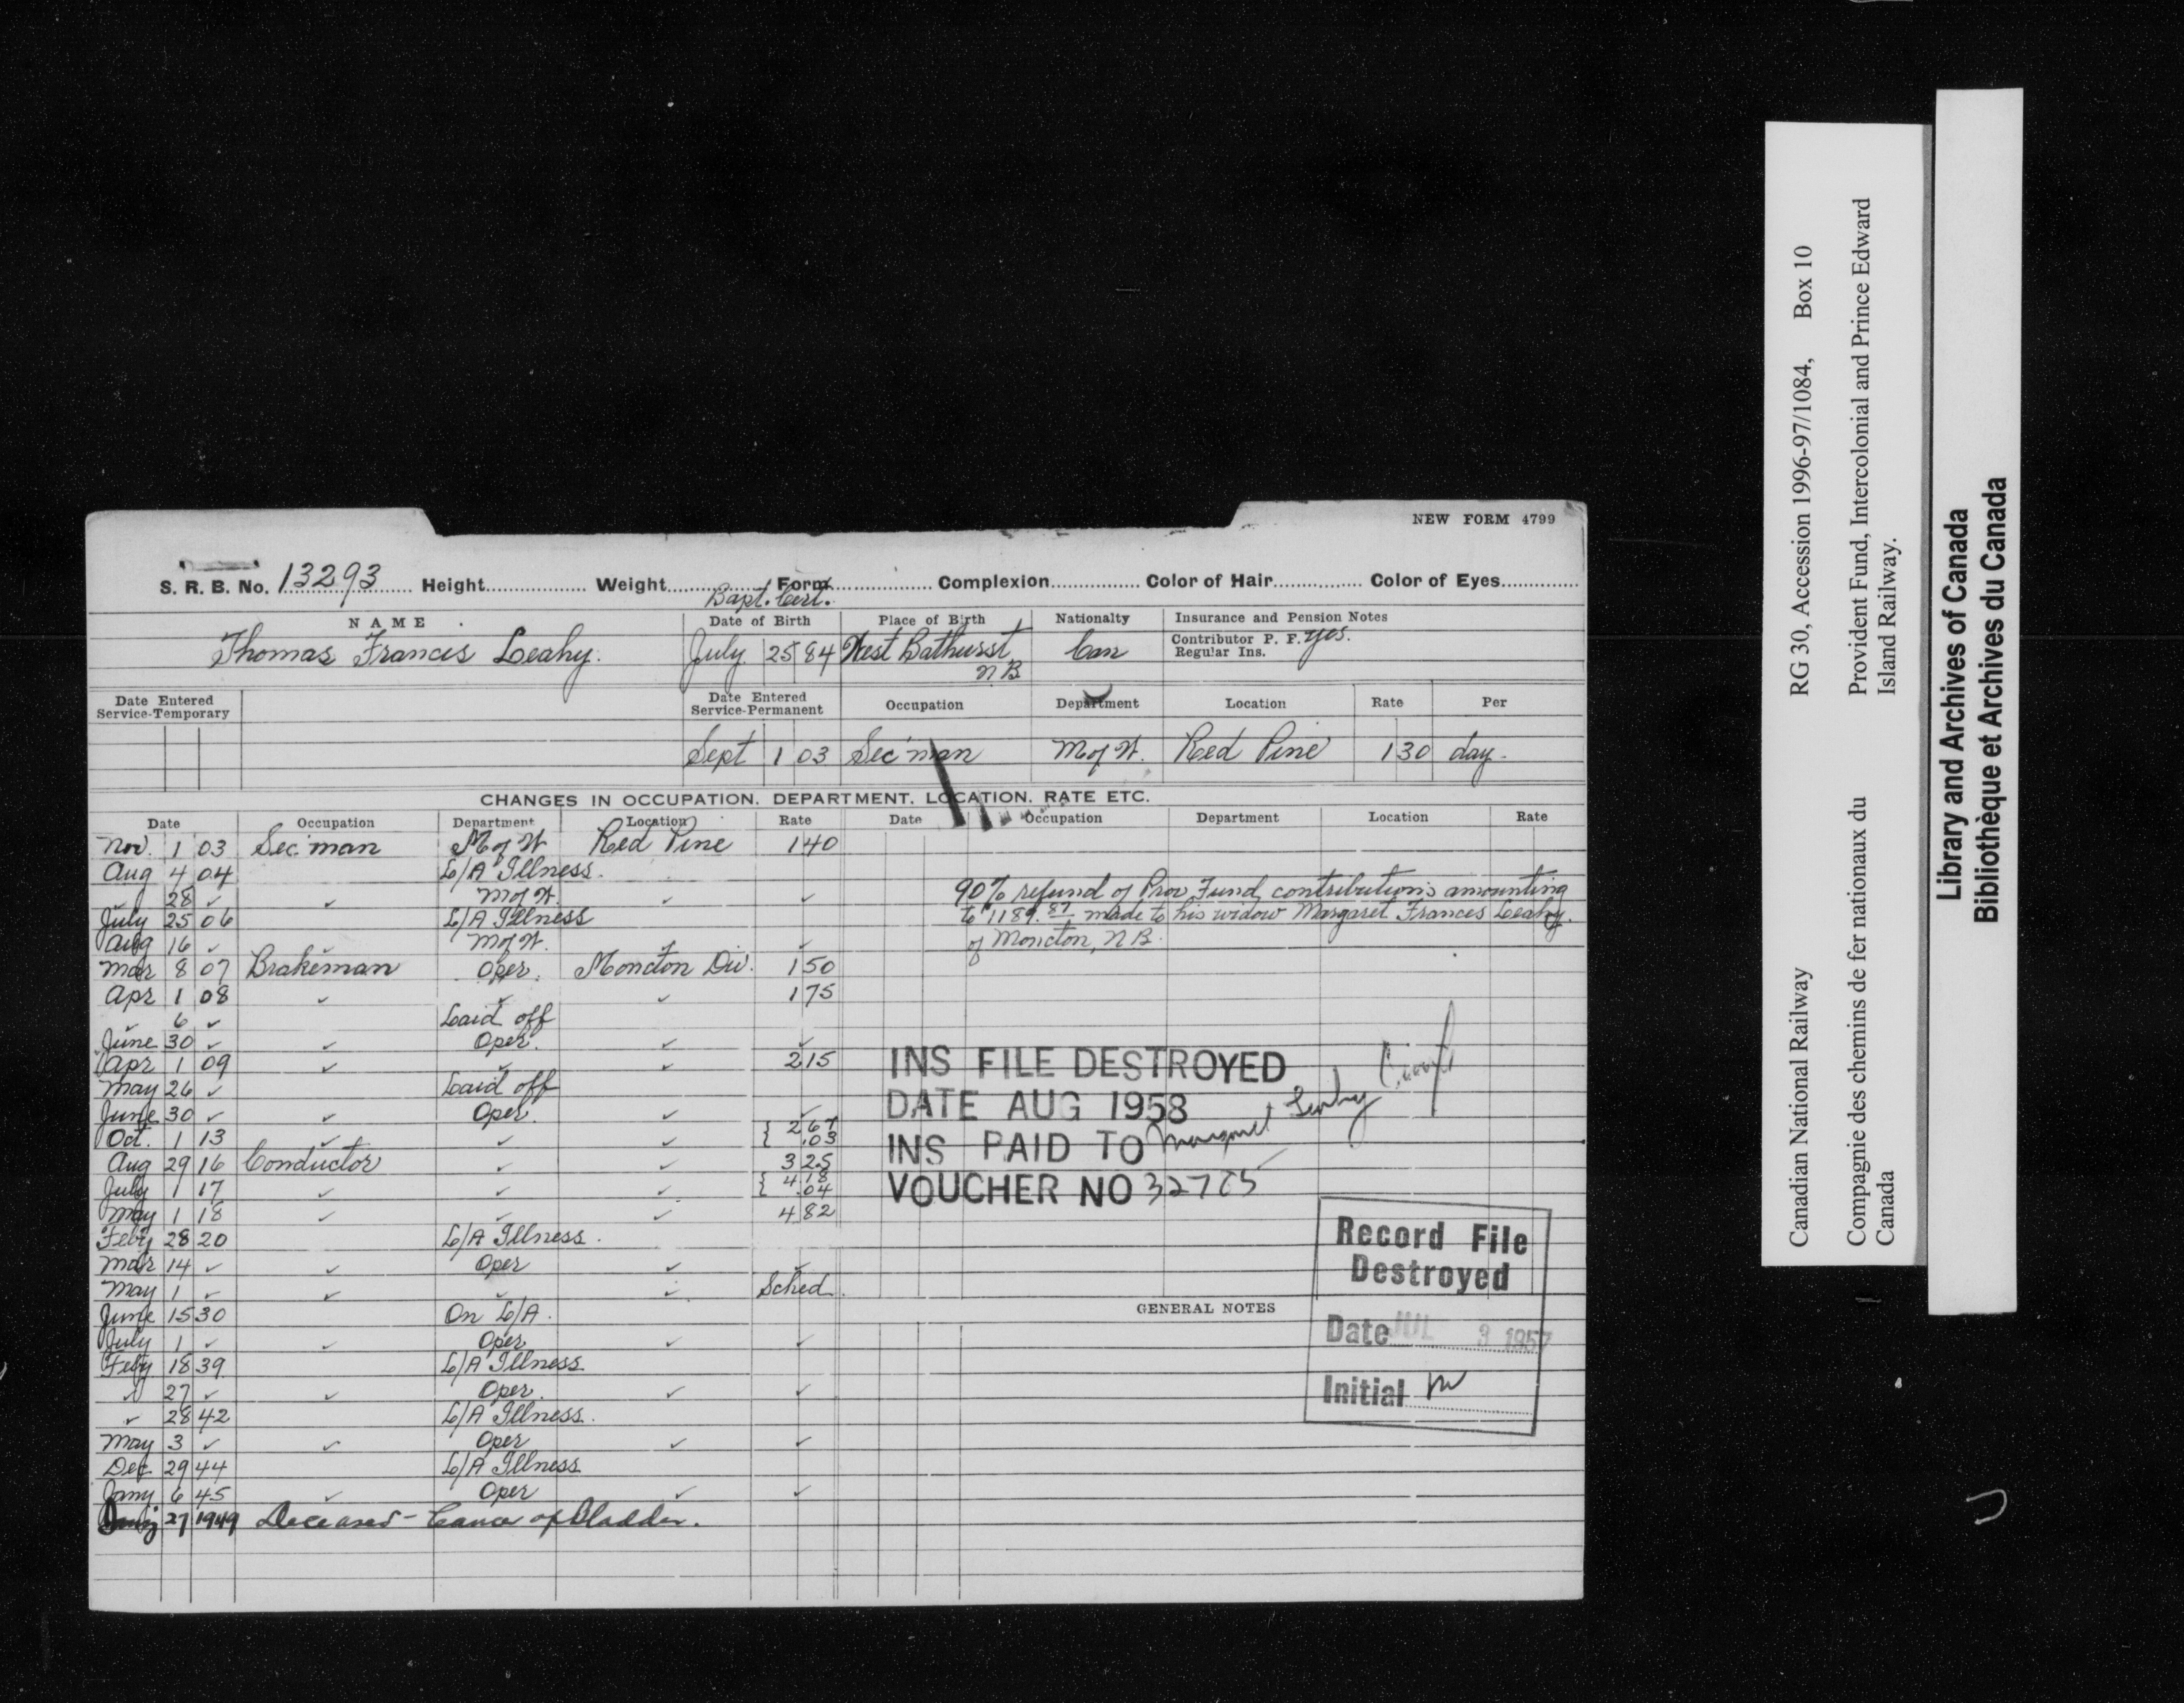 NEW FORM 4799
S. R. B. No. 13293 Height Weight Form Complexion Color of Hair Color of Eyes
Bapt. Cert.
NAME Date of Birth Place of Birth Nationalty Insurance and Pension Notes
Thomas Frances Leahy. July 25 84 West Bathurst N B Can Contributor P. F. yes.
Regular Ins.
Date Entered Service-Temporary Date Entered Service-Permanent Occupation Department Location Rate Per
Sept 1 03 Sec'man M of W. Red Pine 1 30 day.
CHANGES IN OCCUPATION, DEPARTMENT, LOCATION, RATE ETC.
Date Occupation Department Location Rate Date Occupation Department Location Rate
Nov. 1 03 Sec'man M of W Red Pine 1 40
Aug 4 04 L/A Illness.
28 ✓ ✓ M of W. ✓ ✓
July 25 06 L/A Illness
Aug 16 ✓ ✓ M of W. ✓ ✓
Mar 8 07 Brakeman Oper. Moncton Div. 1 50
Apr 1 08 ✓ ✓ ✓ 1 75
✓ 6 ✓ Laid off
June 30 ✓ ✓ Oper. ✓ ✓
Apr 1 09 ✓ ✓ ✓ 2 15
May 26 ✓ Laid off
June 30 ✓ ✓ Oper. ✓ ✓
Oct. 1 13 ✓ ✓ ✓ { 2 67 .03
Aug 29 16 Conductor ✓ ✓ 3 25
July 1 17 ✓ ✓ ✓ { 4 18 .04
May 1 18 ✓ ✓ ✓ 4 82
Feby 28 20 L/A Illness.
Mar 14 ✓ ✓ Oper ✓ ✓
May 1 ✓ ✓ ✓ ✓ Sched.
June 15 30 On L/A.
July 1 ✓ ✓ Oper ✓ ✓
Feby 18 39 L/A Illness
✓ 27 ✓ ✓ Oper. ✓ ✓
✓ 28 42 L/A Illness.
May 3 ✓ ✓ Oper ✓ ✓
Dec 29 44 L/A Illness
Jany 6 45 ✓ Oper ✓ ✓
27 1949 Deceased - Cancer of Bladder.
90% refund of Prov. Fund contributions amounting
to $1189.87 made to his widow Margaret Frances Leahy.
of Moncton, N B.
INS FILE DESTROYED
DATE AUG 1958
INS PAID TO Margaret Leahy
VOUCHER NO
GENERAL NOTES
Record File
Destroyed
Date JUL 3 1957
Initial
Canadian National Railway RG 30, Accession 1996-97/1084, Box 10
Compagnie des chemins de fer nationaux du Canada
Provident Fund, Intercolonial and Prince Edward Island Railway.
Library and Archives of Canada
Bibliothèque et Archives du Canada